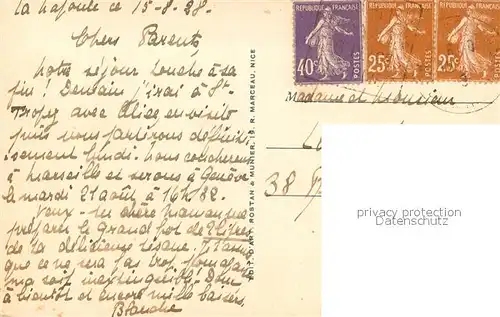 La Napoule ce 15-8-28.
Chers Parents
Notre séjour touche à sa
fin ! Demain j'irai à St-
Tropez avec Alice en visite
puis nous partirons définiti-
sement lundi. Nous coucherons
à Marseille et serons à Genève
le mardi 21 août à 16h32.
Veux-tu chère maman me
préparer le grand pot de 2 litres
de ta délicieuse tisane.
que ce ne sera pas trop pour
ma soif inextinguible! Donc
à bientôt et encore mille baisers.
Blanche
EDIT. D'ART, ROSTAN & MUNIER, 19, R. MARCEAU, NICE
REPUBLIQUE FRANÇAISE
40c
POSTES
REPUBLIQUE FRANÇAISE
25c
POSTES
REPUBLIQUE FRANÇAISE
25c
POSTES
Madame et Monsieur
38
privacy protection
Datenschutz